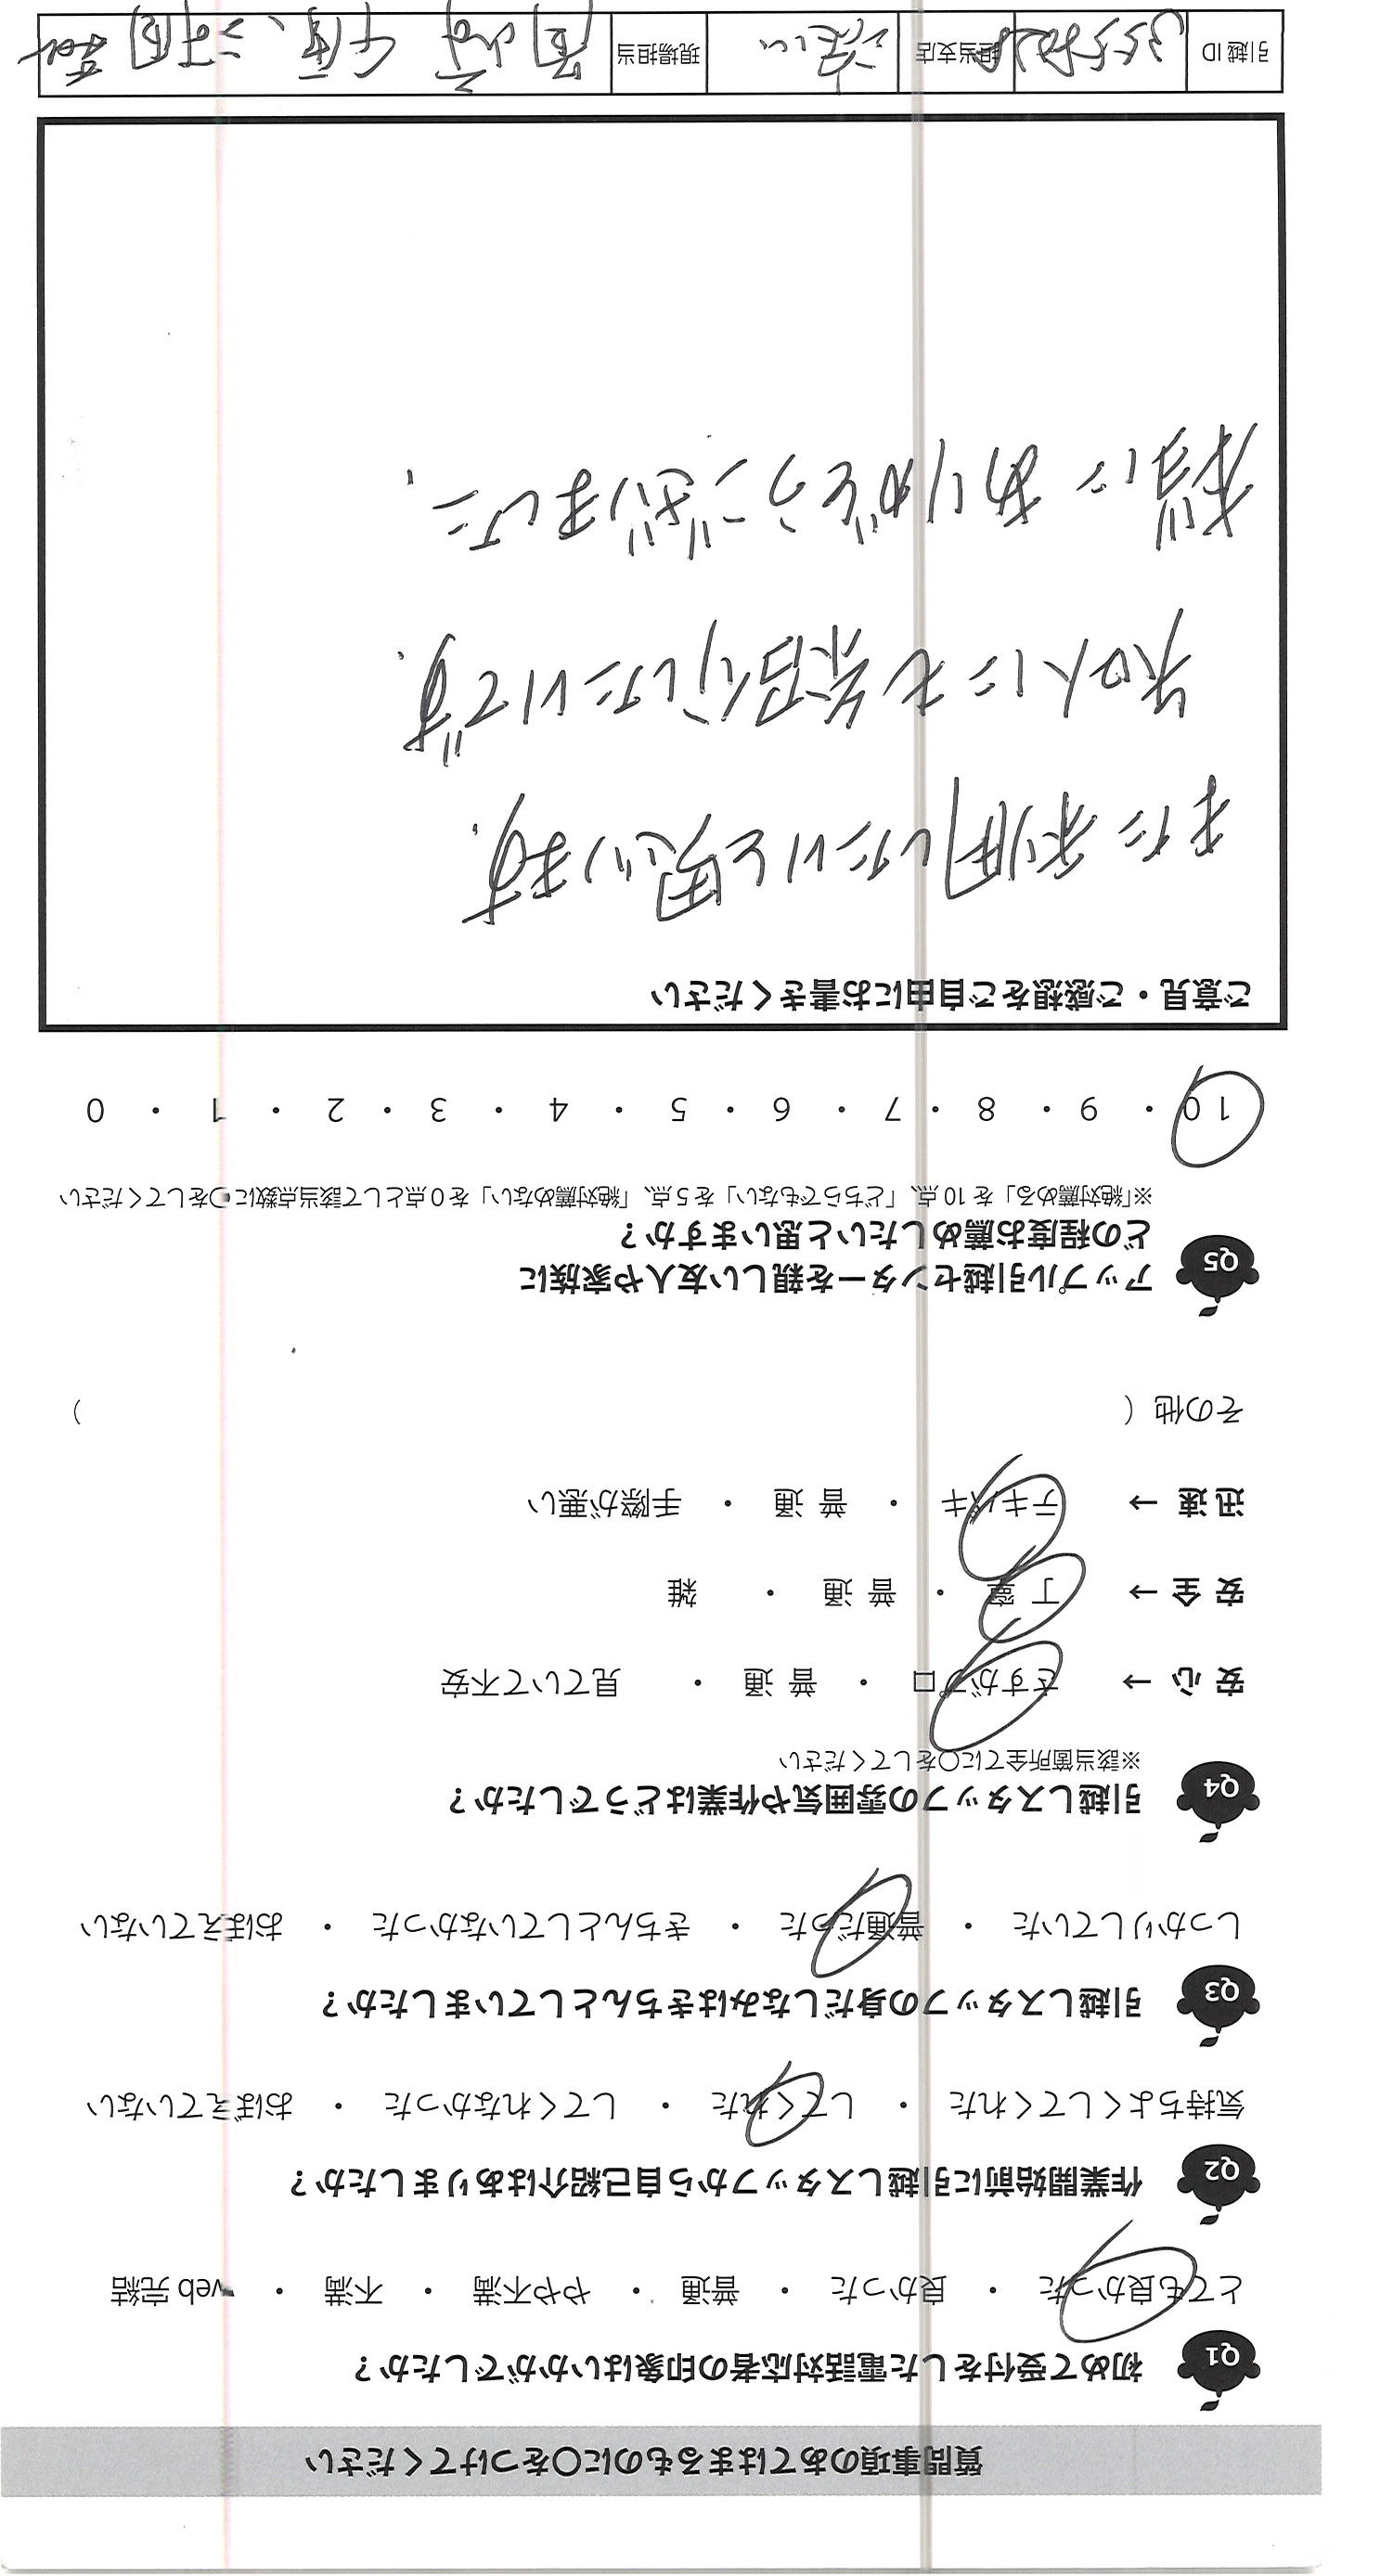 質問事項のあてはまるものに〇をつけてください
Q1 初めて受付をした電話対応者の印象はいかがでしたか?
とても良かった ・ 良かった ・ 普通 ・ やや不満 ・ 不満 ・ web 完結
Q2 作業開始前に引越しスタッフから自己紹介はありましたか?
気持ちよくしてくれた ・ してくれた ・ してくれなかった ・ おぼえていない
Q3 引越しスタッフの身だしなみはきちんとしていましたか?
しっかりしていた ・ 普通だった ・ きちんとしていなかった ・ おぼえていない
Q4 引越しスタッフの雰囲気や作業はどうでしたか?
※該当箇所全てに〇をしてください
安心→ さすがプロ ・ 普通 ・ 見ていて不安
安全→ 丁寧 ・ 普通 ・ 雑
迅速→ テキパキ ・ 普通 ・ 手際が悪い
その他 ( )
Q5 アップル引越センターを親しい友人や家族に
どの程度お薦めしたいと思いますか?
※「絶対薦める」を10点、「どちらでもない」を5点、「絶対薦めない」を0点として該当点数に〇をしてください
10 ・ 9 ・ 8 ・ 7 ・ 6 ・ 5 ・ 4 ・ 3 ・ 2 ・ 1 ・ 0
ご意見・ご感想をご自由にお書きください
また利用したいと思います。
知人にも紹介したいです。
本当にありがとうございました。
引越ID 担当支店 現場担当